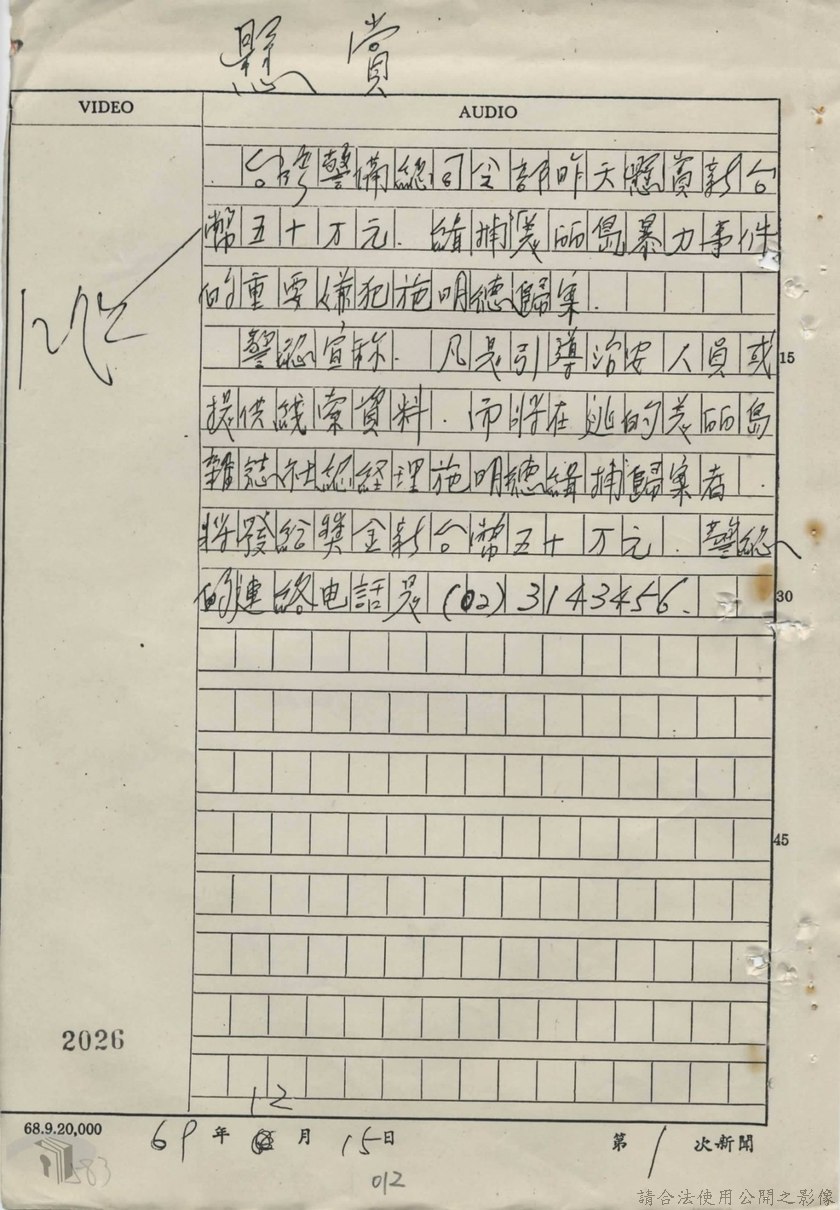 懸賞
VIDEO AUDIO
台灣警備總司令部昨天懸賞新台
幣五十万元.緝捕美麗島暴力事件
的重要嫌犯施明德歸案.
警總宣称.凡是引導治安人員或 15
提供綫索資料.而將在逃的美丽島
雜誌社総経理施明德緝捕歸案者.
將發給獎金新台幣五十万元.警総
的連絡电話是(02)3143456. 30
45
2026
12
68.9.20,000 69年 月15日 第1次新聞
583
012
請合法使用公開之影像